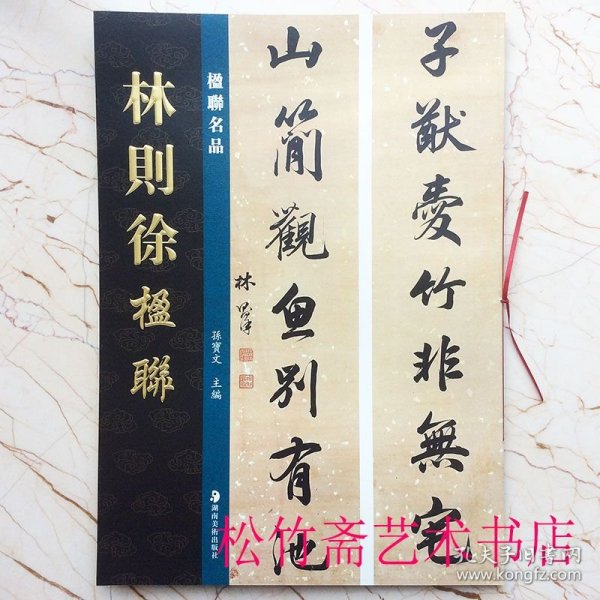 林則徐楹聯
楹聯名品
孫寶文 主編
湖南美術出版社
子猷愛竹非無宅
山簡觀魚別有池
林則徐
松竹斋艺术书店
孔夫子旧书网
www.kongfz.com